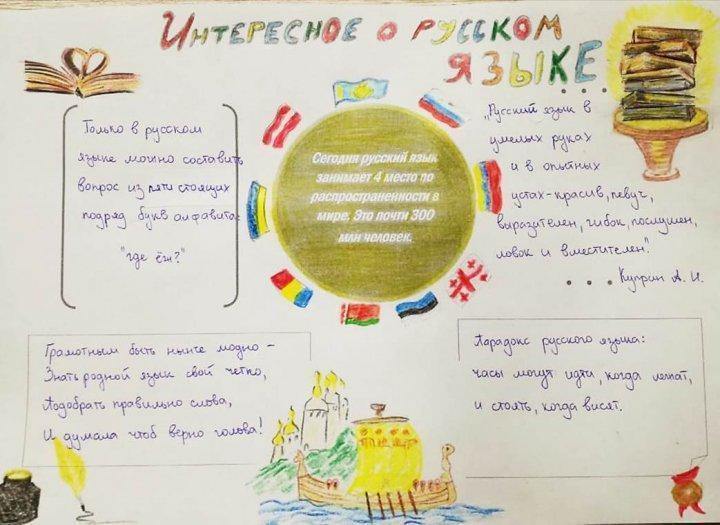 Интересное о русском
языке...
Только в русском
языке можно составить
вопрос из пяти стоящих
подряд букв алфавита:
"где ёж?"
Сегодня русский язык
занимает 4 место по
распространенности в
мире. Это почти 300
млн человек.
"Русский язык в
умелых руках
и в опытных
устах-красив, певуч,
выразителен, гибок, послушен,
ловок и вместителен".
... Куприн А. И.
Грамотным быть нынче модно -
Знать родной язык свой четко,
Подобрать правильно слова,
И думала чтоб верно голова!
Парадокс русского языка:
часы могут идти, когда лежат,
и стоять, когда висят.